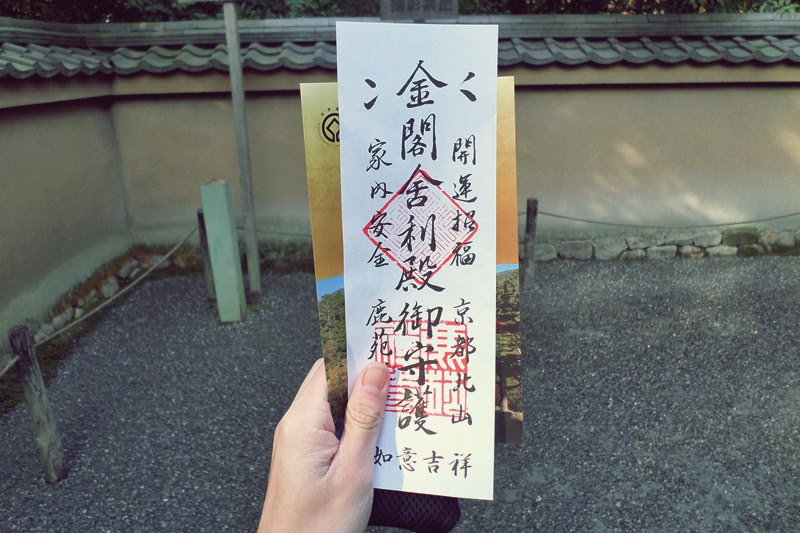 開運招福 京都北山
金閣舎利殿御守護
家内安全 鹿苑
如意吉祥